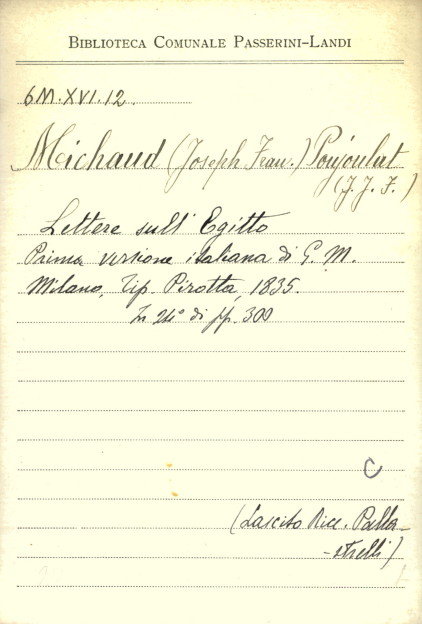 BIBLIOTECA COMUNALE PASSERINI-LANDI
6M.XVI.12.
Michaud (Joseph Fran.) Poujoulat
(J. J. F.)
Lettere sull' Egitto
Prima versione italiana di G. M.
Milano, Tip. Pirotta, 1835.
In 24° di pp. 300
C
(Lascito Ricc. Palla-
-strelli)